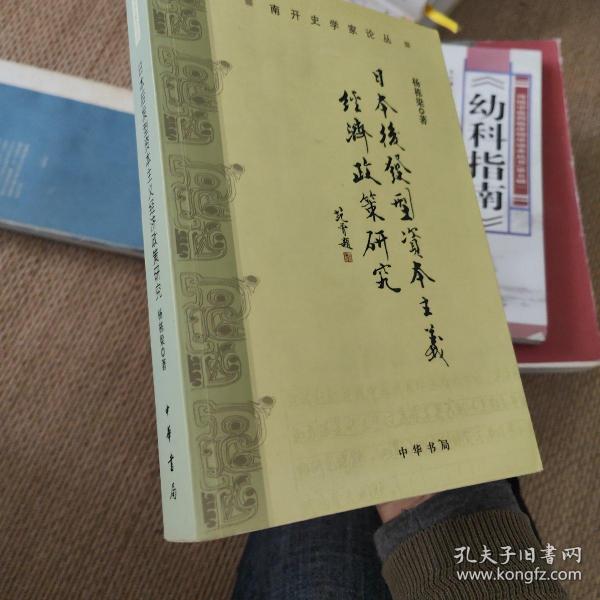 南开史学家论丛
杨栋梁 著
日本後發型資本主義
經濟政策研究
范曾題
中华书局
日本后发型资本主义经济政策研究 杨栋梁 著 中华书局
《幼科指南》
孔夫子旧书网
www.kongfz.com